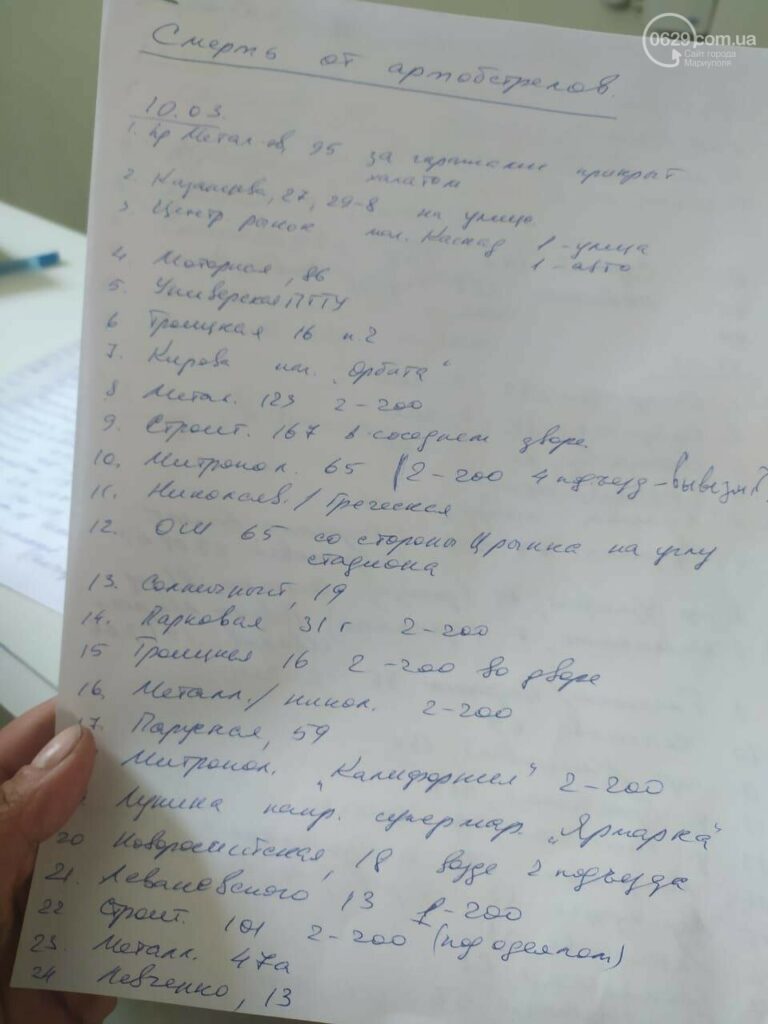 0629.com.ua
Сайт города
Мариуполя
Смерть от артобстрелов.
10.03.
1. пр Метал-ов, 95 за гаражами прикрыт
халатом
2. Казанцева, 27, 29-8 на улице
3. Центр рынок маг. Каскад 1-улица
1-авто
4. Моторная, 86
5. Универская ПГТУ
6 Троицкая 16 п.2
7. Кирова маг. "Орбита"
8 Метал. 123 2-200
9. Строит. 167 в соседнем дворе.
10. Митропол. 65 (2-200 4 подъезд-
11. Николаев./Греческая
12. ОШ 65 со стороны Ц рынка на углу
стадиона
13. Солнечный, 19
14. Парковая 31 г 2-200
15 Троицкая 16 2-200 во дворе
16. Металл./никол. 2-200
17. Парусная, 59
Митропол. "Калифорния" 2-200
Лунина напр. супермар. "Ярмарка"
20 Новоросийская, 18 возде 2 подъезда
21. Леваневского 13 1-200
22 Строит. 101 2-200 (под одеялом)
23. Металл. 47а
24 Левченко, 13